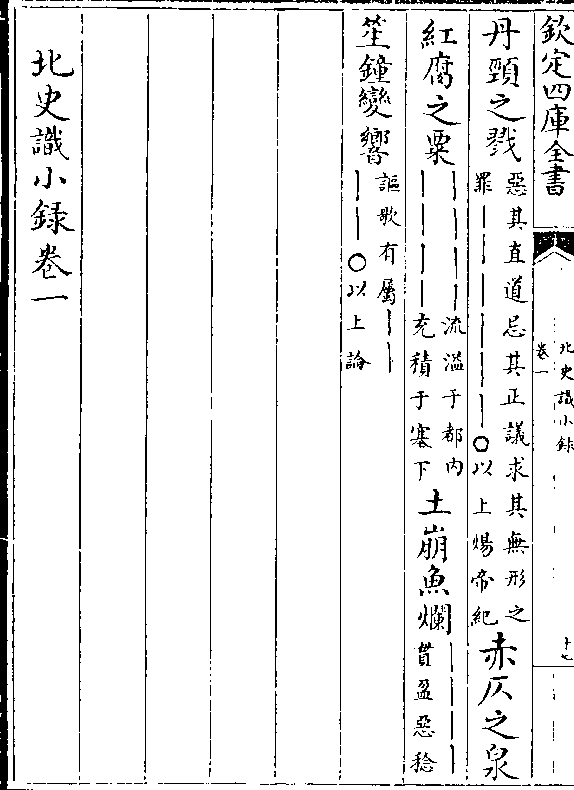 欽定四庫全書
北史識小録
卷一
十七
丹頸之戮
惡其直道忌其正議求其無形之
罪丨丨丨丨○以上煬帝紀
赤仄之泉
紅腐之粟
丨丨丨丨流溢于都内
丨丨丨丨充積于塞下
土崩魚爛
貫盈惡稔
丨丨丨丨
笙鐘變響
謳歌有屬丨丨
丨丨○以上論
北史識小録卷一